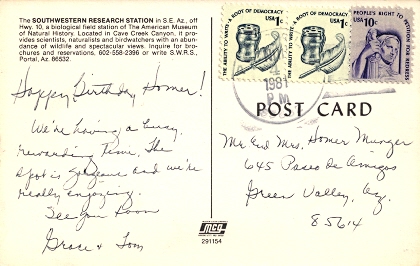 The SOUTHWESTERN RESEARCH STATION in S.E. Az., off
Hwy. 10, a biological field station of The American Museum
of Natural History. Located in Cave Creek Canyon, it pro-
vides scientists, naturalists and birdwatchers with an abun-
dance of wildlife and spectacular views. Inquire for bro-
chures and reservations. 602-558-2396 or write S.W.R.S.,
Portal, Az. 86532
Happy Birthday Homer!
We're having a busy,
rewarding time. The
spot is gorgeous and we're
really enjoying.
See you soon
Grace & Tom
THE ABILITY TO WRITE · A ROOT OF DEMOCRACY
USA 1c
THE ABILITY TO WRITE · A ROOT OF DEMOCRACY
USA 1c
PEOPLE'S RIGHT TO PETITION FOR REDRESS
USA 10c
1981
PM
POST CARD
Mr. and Mrs. Homer Munger
645 Paseo de Amigos
Green Valley, Az.
85614
291154